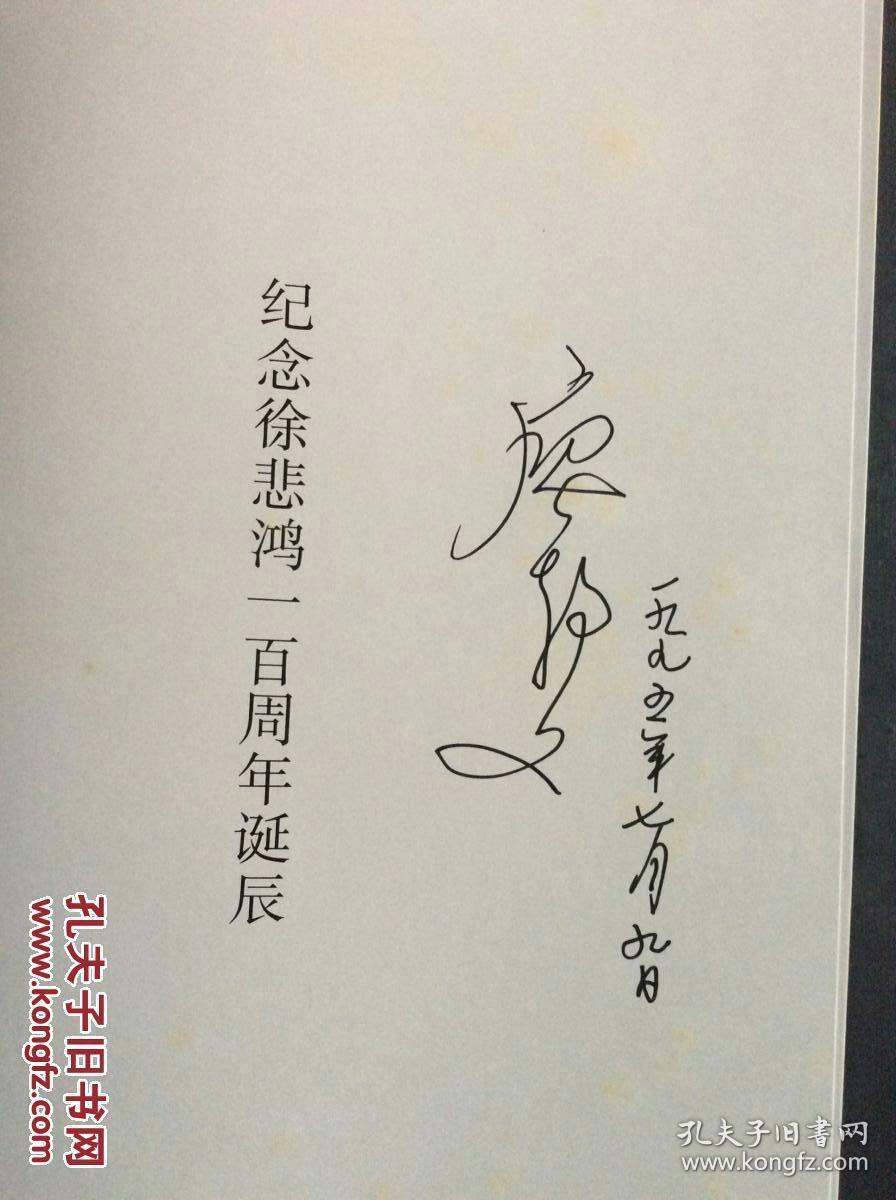 一九九五年七月九日
纪念徐悲鸿一百周年诞辰
孔夫子旧书网
www.kongfz.com
孔夫子旧書网
www.kongfz.com